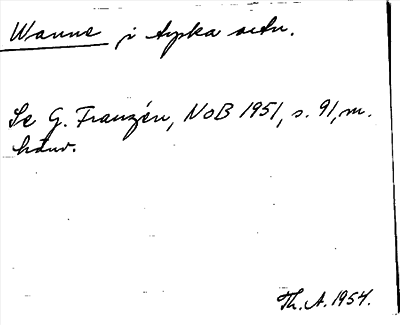 Wanne i tyska ortn.
Se G. Franzén, NoB 1951, s. 91, m.
hänv.
Th. A. 1954.